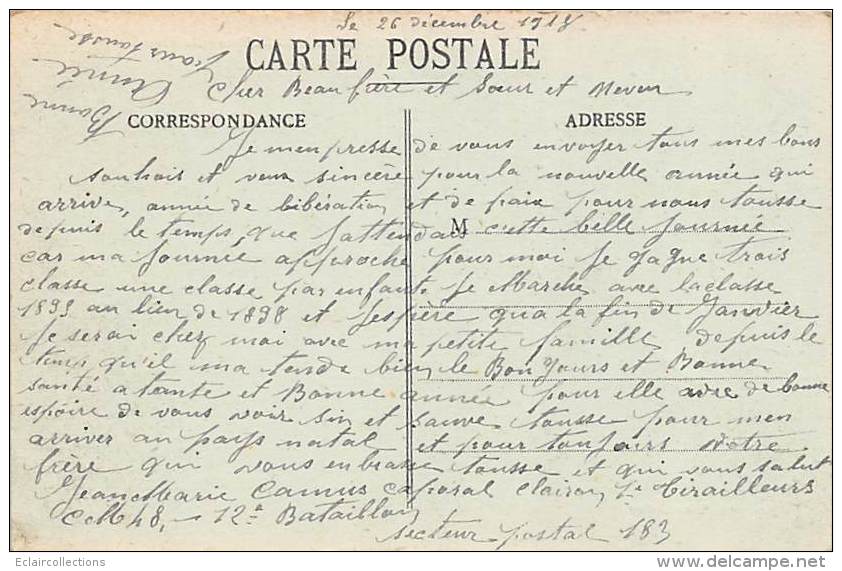 Le 26 décembre 1918
Bonne Année
pour tousse
CARTE POSTALE
Cher Beau frère et Soeur et Neveu
CORRESPONDANCE
ADRESSE
Je men presse de vous envoyer tous mes bons
souhais et veux sincère pour la nouvelle année qui
arrive, année de libération et de paix pour nous tousse
depuis le temps que Jattendais cette belle Journée
M
car ma Journée approche pour moi Je gagne trois
classe une classe par enfants Je Marche avec la classe
1895 au lieu de 1898 et Jespère qua la fin de Janvier
Je serai chez moi avec ma petite famille depuis le
temp qu'il ma tarde bien le Bonjours et Bonne
santé a tante et Bonne année pour elle avec de bonne
espoire de vous voir sin et sauve tousse pour men
arriver au pays natal et pour toujours Votre
frère qui vous embrasse tousse et qui vous salut
Jean Marie Camus caporal clairon tirailleurs
12e Bataillon
secteur postal 183
Eclaircollections
www.delcampe.net